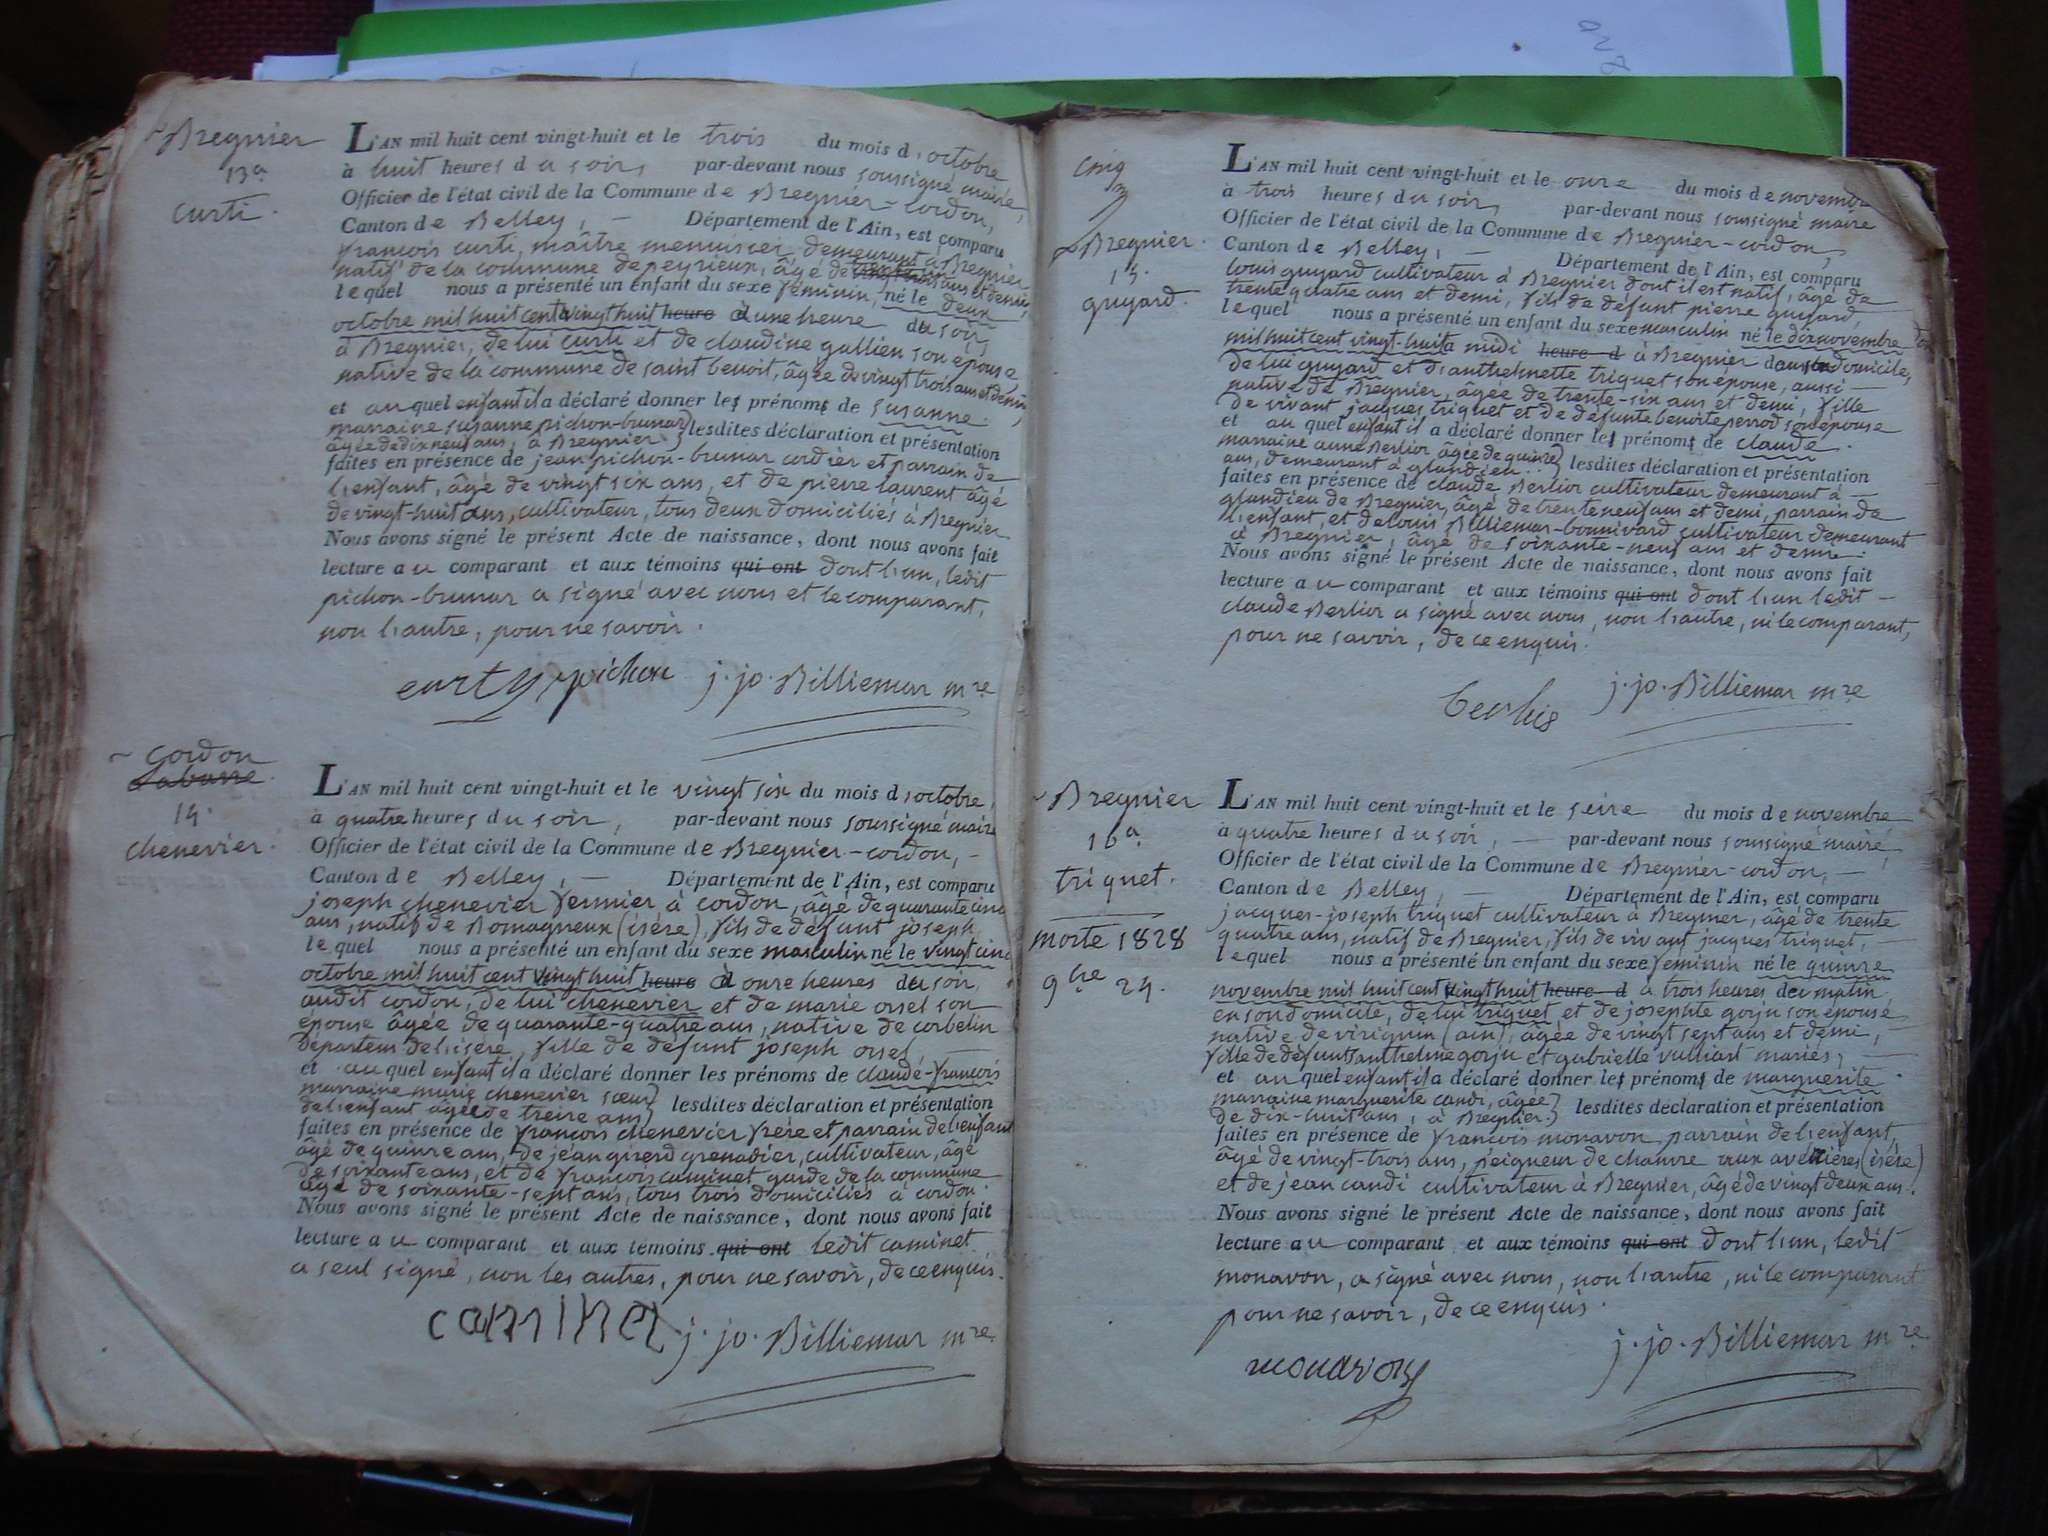 Bregnier
13e
curti.
L'AN mil huit cent vingt-huit et le trois du mois d'octobre
à huit heures du soir, par-devant nous soussigné maire,
Officier de l'état civil de la Commune de Bregnier-cordon,
Canton de Belley, — Département de l'Ain, est comparu
françois curti, maître menuisier, demeurant à Bregnier
natif de la commune de peyrieux, âgé de ans et demi,
lequel nous a présenté un enfant du sexe féminin, né le deux
octobre mil huit cent vingt huit heure à une heure du soir,
à Bregnier, de lui curti et de claudine gallien son épouse
native de la commune de saint benoit, âgée de vingt trois ans et demi,
et auquel enfant il a déclaré donner les prénoms de susanne.
marraine susanne pichon-brunar
âgée de dix neuf ans, à Bregnier. } lesdites déclaration et présentation
faites en présence de jean pichon-brunar cordier et parrain de
l'enfant, âgé de vingt six ans, et de pierre laurent âgé
de vingt-huit ans, cultivateur, tous deux domiciliés à Bregnier
Nous avons signé le présent Acte de naissance, dont nous avons fait
lecture au comparant et aux témoins qui ont dont l'un, ledit
pichon-brunar a signé avec nous et le comparant,
non l'autre, pour ne savoir.
curty pichon j. jo. Billiemar mre
cordon
labarre.
14.
chenevier.
L'AN mil huit cent vingt-huit et le vingt six du mois d'octobre,
à quatre heures du soir, par-devant nous soussigné maire
Officier de l'état civil de la Commune de Bregnier-cordon, —
Canton de Belley, — Département de l'Ain, est comparu
joseph chenevier fermier à cordon, âgé de quarante cinq
ans, natif de Romagneux (isère), fils de défunt joseph,
lequel nous a présenté un enfant du sexe masculin né le vingt cinq
octobre mil huit cent vingt huit heure à onze heures du soir,
audit cordon, de lui chenevier et de marie orsel son
épouse âgée de quarante-quatre ans, native de corbelin
départem de l'isère, fille de défunt joseph orsel, —
et auquel enfant il a déclaré donner les prénoms de claude-françois
marraine marie chenevier sœur
de l'enfant âgée de treize ans } lesdites déclaration et présentation
faites en présence de françois chenevier frère et parrain de l'enfant
âgé de quinze ans, de jean girerd grenadier, cultivateur, âgé
de soixante ans, et de françois caminet garde de la commune
âgé de soixante-sept ans, tous trois domiciliés à cordon.
Nous avons signé le présent Acte de naissance, dont nous avons fait
lecture au comparant et aux témoins qui ont ledit caminet
a seul signé, non les autres, pour ne savoir, de ce enquis.
caminet j. jo. Billiemar mre
cinq
Bregnier.
15.
guyard.
L'AN mil huit cent vingt-huit et le onze du mois de novembre
à trois heures du soir, par-devant nous soussigné maire
Officier de l'état civil de la Commune de Bregnier-cordon,
Canton de Belley, — Département de l'Ain, est comparu
louis guyard cultivateur à Bregnier dont il est natif, âgé de
trente quatre ans et demi, fils de défunt pierre guyard,
lequel nous a présenté un enfant du sexe masculin né le dix novembre
mil huit cent vingt-huit à midi heure d à Bregnier dans son domicile,
de lui guyard et d'anthelmette triquet son épouse, aussi —
native de Bregnier, âgée de trente-six ans et demi, fille
de vivant jacques triquet et de défunte benoite perrod son épouse
et auquel enfant il a déclaré donner les prénoms de claude.
marraine anne Berlior âgée de quinze
ans, demeurant à glandieu.. } lesdites déclaration et présentation
faites en présence de claude Berlior cultivateur demeurant à —
glandieu de Bregnier, âgé de trente neuf ans et demi, parrain de
l'enfant, et de louis Billiemar-bonnivard cultivateur demeurant
à Bregnier, âgé de soixante-neuf ans et demi.
Nous avons signé le présent Acte de naissance, dont nous avons fait
lecture au comparant et aux témoins qui ont dont l'un ledit —
claude Berlior a signé avec nous, non l'autre, ni le comparant,
pour ne savoir, de ce enquis.
j. jo. Billiemar mre
Bregnier
16e
triquet.
morte 1828
9bre 24.
L'AN mil huit cent vingt-huit et le seize du mois de novembre
à quatre heures du soir, — par-devant nous soussigné maire,
Officier de l'état civil de la Commune de Bregnier-cordon, —
Canton de Belley, — Département de l'Ain, est comparu
jacques-joseph triquet cultivateur à Bregnier, âgé de trente
quatre ans, natif de Bregnier, fils de vivant jacques triquet, —
lequel nous a présenté un enfant du sexe féminin né le quinze
novembre mil huit cent vingt huit heure d à trois heures du matin
en son domicile, de lui triquet et de josephte gorju son épouse
native de virignin (ain), âgée de vingt sept ans et demi,
fille de défunts anthelme gorju et gabrielle vulliart mariés, —
et auquel enfant il a déclaré donner les prénoms de marguerite.
marraine marguerite candi, âgée
de dix-huit ans, à Bregnier. } lesdites déclaration et présentation
faites en présence de françois monavon parrain de l'enfant,
âgé de vingt-trois ans, peigneur de chanvre aux avenières (isère)
et de jean candi cultivateur à Bregnier, âgé de vingt deux ans.
Nous avons signé le présent Acte de naissance, dont nous avons fait
lecture au comparant et aux témoins qui ont dont l'un, ledit
monavon, a signé avec nous, non l'autre, ni le comparant
pour ne savoir, de ce enquis.
monavon j. jo. Billiemar mre